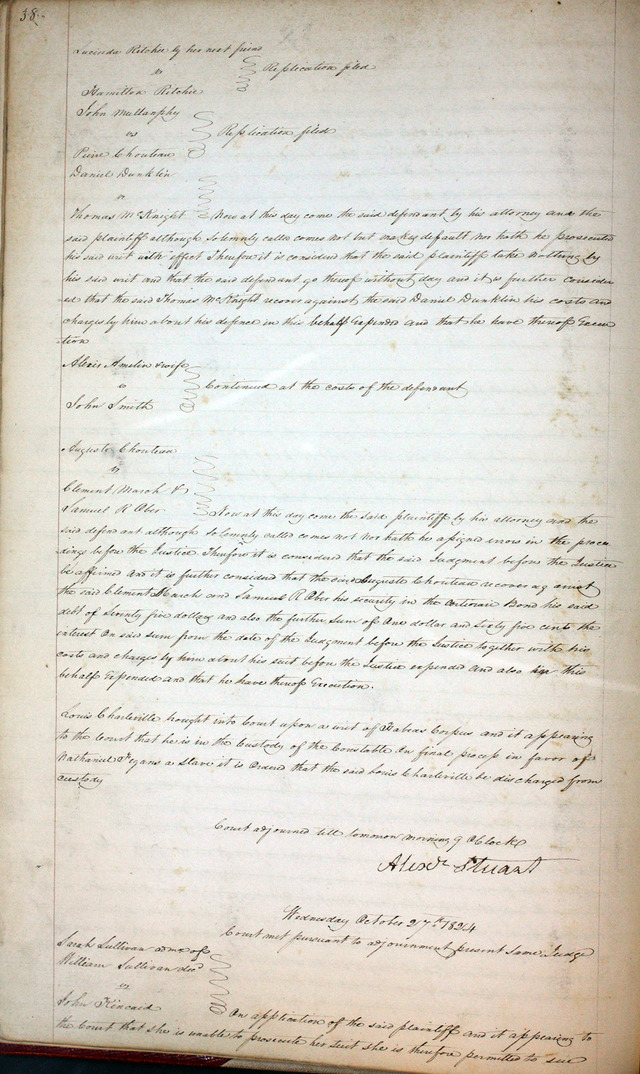 38.
Lucinda Ritchie by her next friend
vs
Replication filed
Hamilton Ritchie
John Mullanphy
vs
Replication filed
Pierre Chouteau
Daniel Dunklin
vs
Thomas McKnight Now at this day come the said defendant by his attorney and the
said plaintiff although solemnly called comes not but makes default nor hath he prosecuted
his said writ with effect Therefore it is considered that the said plaintiff take nothing by
his said writ and that the said defendant go thereof without day and it is further consider
ed that the said Thomas McKnight recover against the said Daniel Dunklin his costs and
charges by him about his defence in this behalf Expended and that he have thereof Execu
tion
Alexis Amelin & wife
vs
Continued at the costs of the defendant
John Smith
Auguste Chouteau
vs
Clement March &
Samuel R Ober Now at this day come the said plaintiff by his attorney and the
said defendant although solemnly called comes not nor hath he assigned errors in the procee
dings before the Justice Therefore it is considered that the said Judgment before the Justice
be affirmed And it is further considered that the said Auguste Chouteau recover against
the said Clement March and Samuel R Ober his security in the Certiorari Bond his said
debt of Seventy five dollars and also the further sum of One dollar and Sixty five cents the
interest On said sum from the date of the Judgment before the Justice together with his
costs and charges by him about his suit before the Justice expended And also in this
behalf Expended and that he have thereof Execution.
Louis Charleville brought into Court upon a writ of Habeas Corpus and it appearing
to the Court that he is in the Custody of the Constable On final process in favor of
Nathaniel a slave it is Ordered that the said Louis Charleville be discharged from
custody
Court adjourned till tomorrow morning 9 OClock
Alexr Stuart
Wednesday October 27th 1824
Court met pursuant to adjournment present same Judge
Sarah Sullivan admx of
William Sullivan decd
vs
John Kincaid
On application of the said plaintiff and it appearing to
the Court that she is unable to prosecute her suit she is therefore permitted to sue